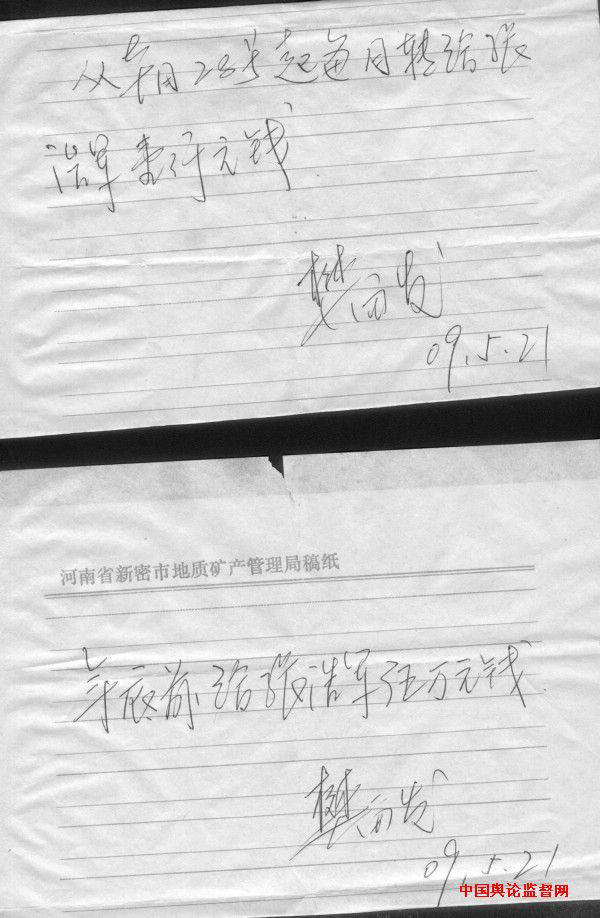 从本月28号起每月转给张
浩军壹仟元钱
樊发
09.5.21
河南省新密市地质矿产管理局稿纸
年底前给张浩军伍万元钱
樊发
09.5.21
中国舆论监督网